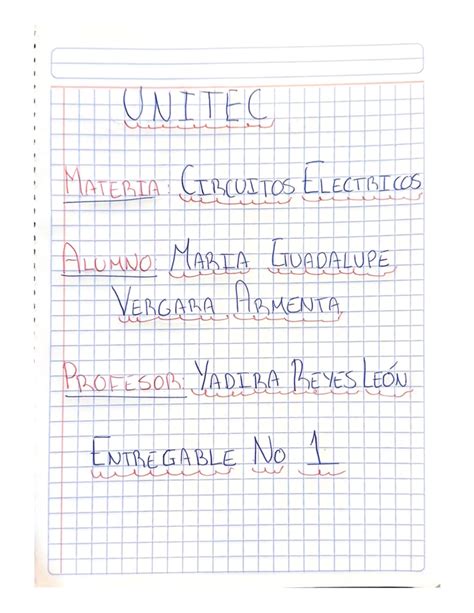 UNITEC
MATERIA: CIRCUITOS ELECTRICOS
ALUMNO: MARIA GUADALUPE
VERGARA ARMENTA
PROFESOR: YADIRA REYES LEÓN
ENTREGABLE No 1